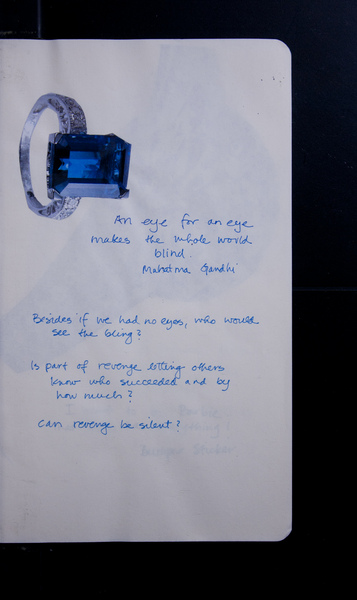 An eye for an eye
makes the whole world
blind.
Mahatma Gandhi
Besides if we had no eyes, who would
see the bling?
Is part of revenge letting others
know who succeeded and by
how much?
Can revenge be silent?